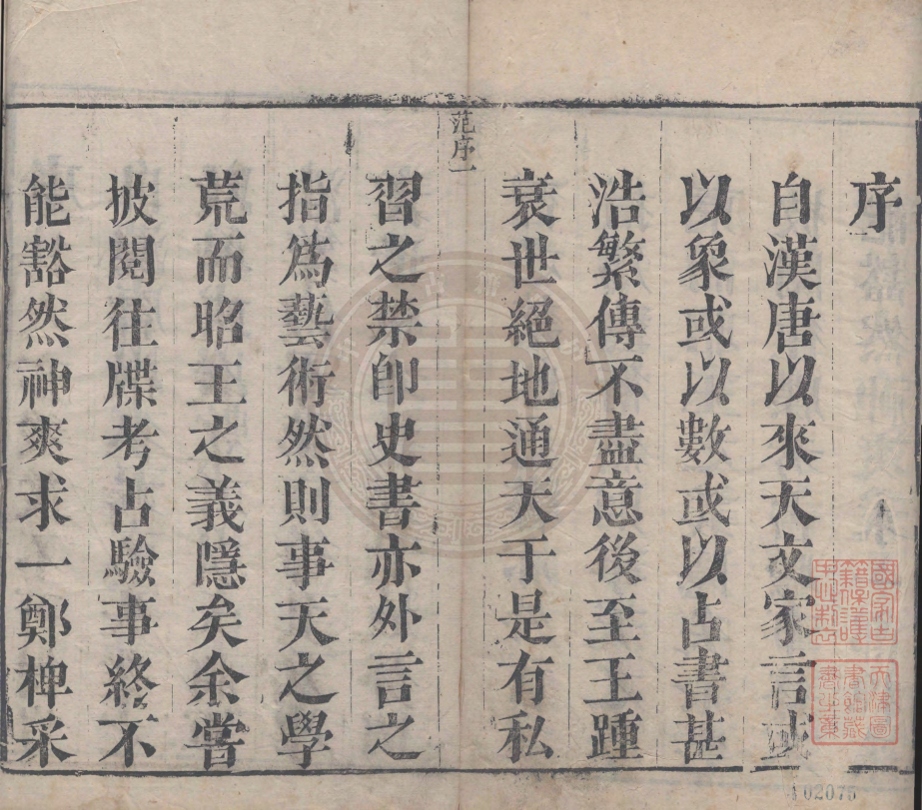 序
自漢唐以來天文家言或
以象或以數或以占書甚
浩繁傳不盡意後至王踵
衰世絕地通天于是有私
范序一
習之禁卽史書亦外言之
指爲藝術然則事天之學
荒而昭王之義隱矣余嘗
披閱往牒考占驗事終不
能豁然神爽求一鄭椑采
國家古
籍保護
中心制
天津圖
書館藏
02075